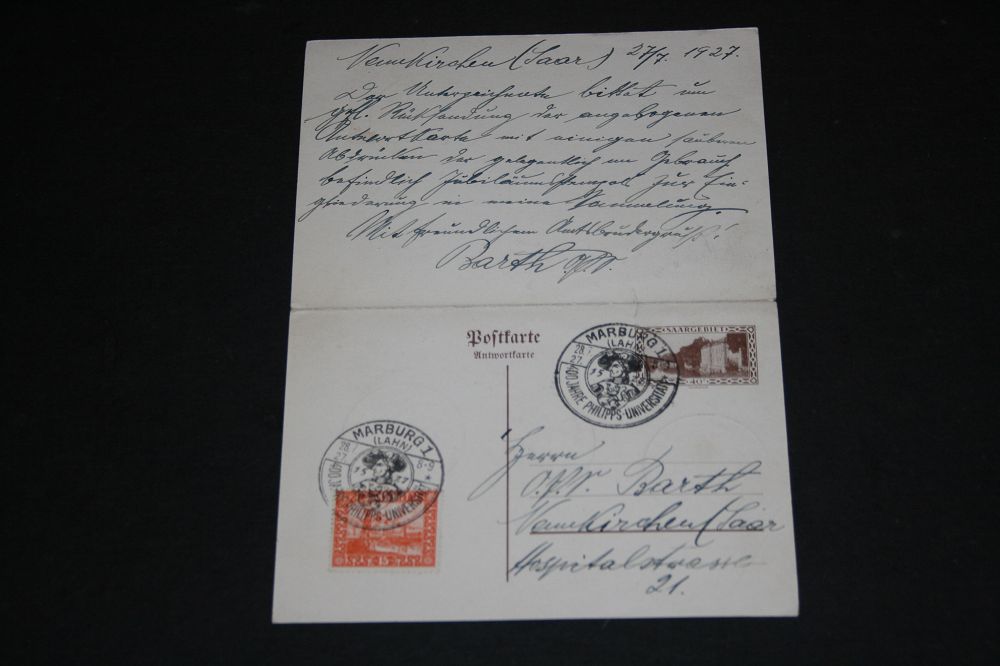 Neunkirchen (Saar) 27/7. 1927.
Der Unterzeichnete bittet um
gfl. Rücksendung der angebogenen
Antwortkarte mit einigen sauberen
Abdrücken der gelegentlich im Gebrauch
befindlich Jubiläumsstempel zur Ein-
gliederung in meine Sammlung.
Mit freundlichem Amtsbrudergruß!
Barth
Postkarte
Antwortkarte
SAARGEBIET
40
MARBURG 1
(LAHN)
28.7.
27. 8-9
15 27
400 JAHRE PHILIPPS-UNIVERSITÄT
MARBURG 1
(LAHN)
28.
27. 8-9
15 27
400 JAHRE PHILIPPS-UNIVERSITÄT
15
Herrn
Barth
Neunkirchen (Saar
Hospitalstrasse
21.